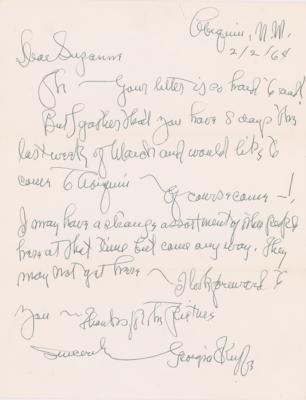 Abiquiu, N.M.
2/2/64
Dear Suzanne
Oh — Your letter is so hard to read
But I gather that you have 8 days the
last week of March and would like to
come to Abiquiu — Of course come —!
I may have a strange assortment of other people
here at that time but come any way. They
may not get here ~ I look foreward to
you ~ Thanks for the pictures
Sincerely
Georgia O'Keeffe